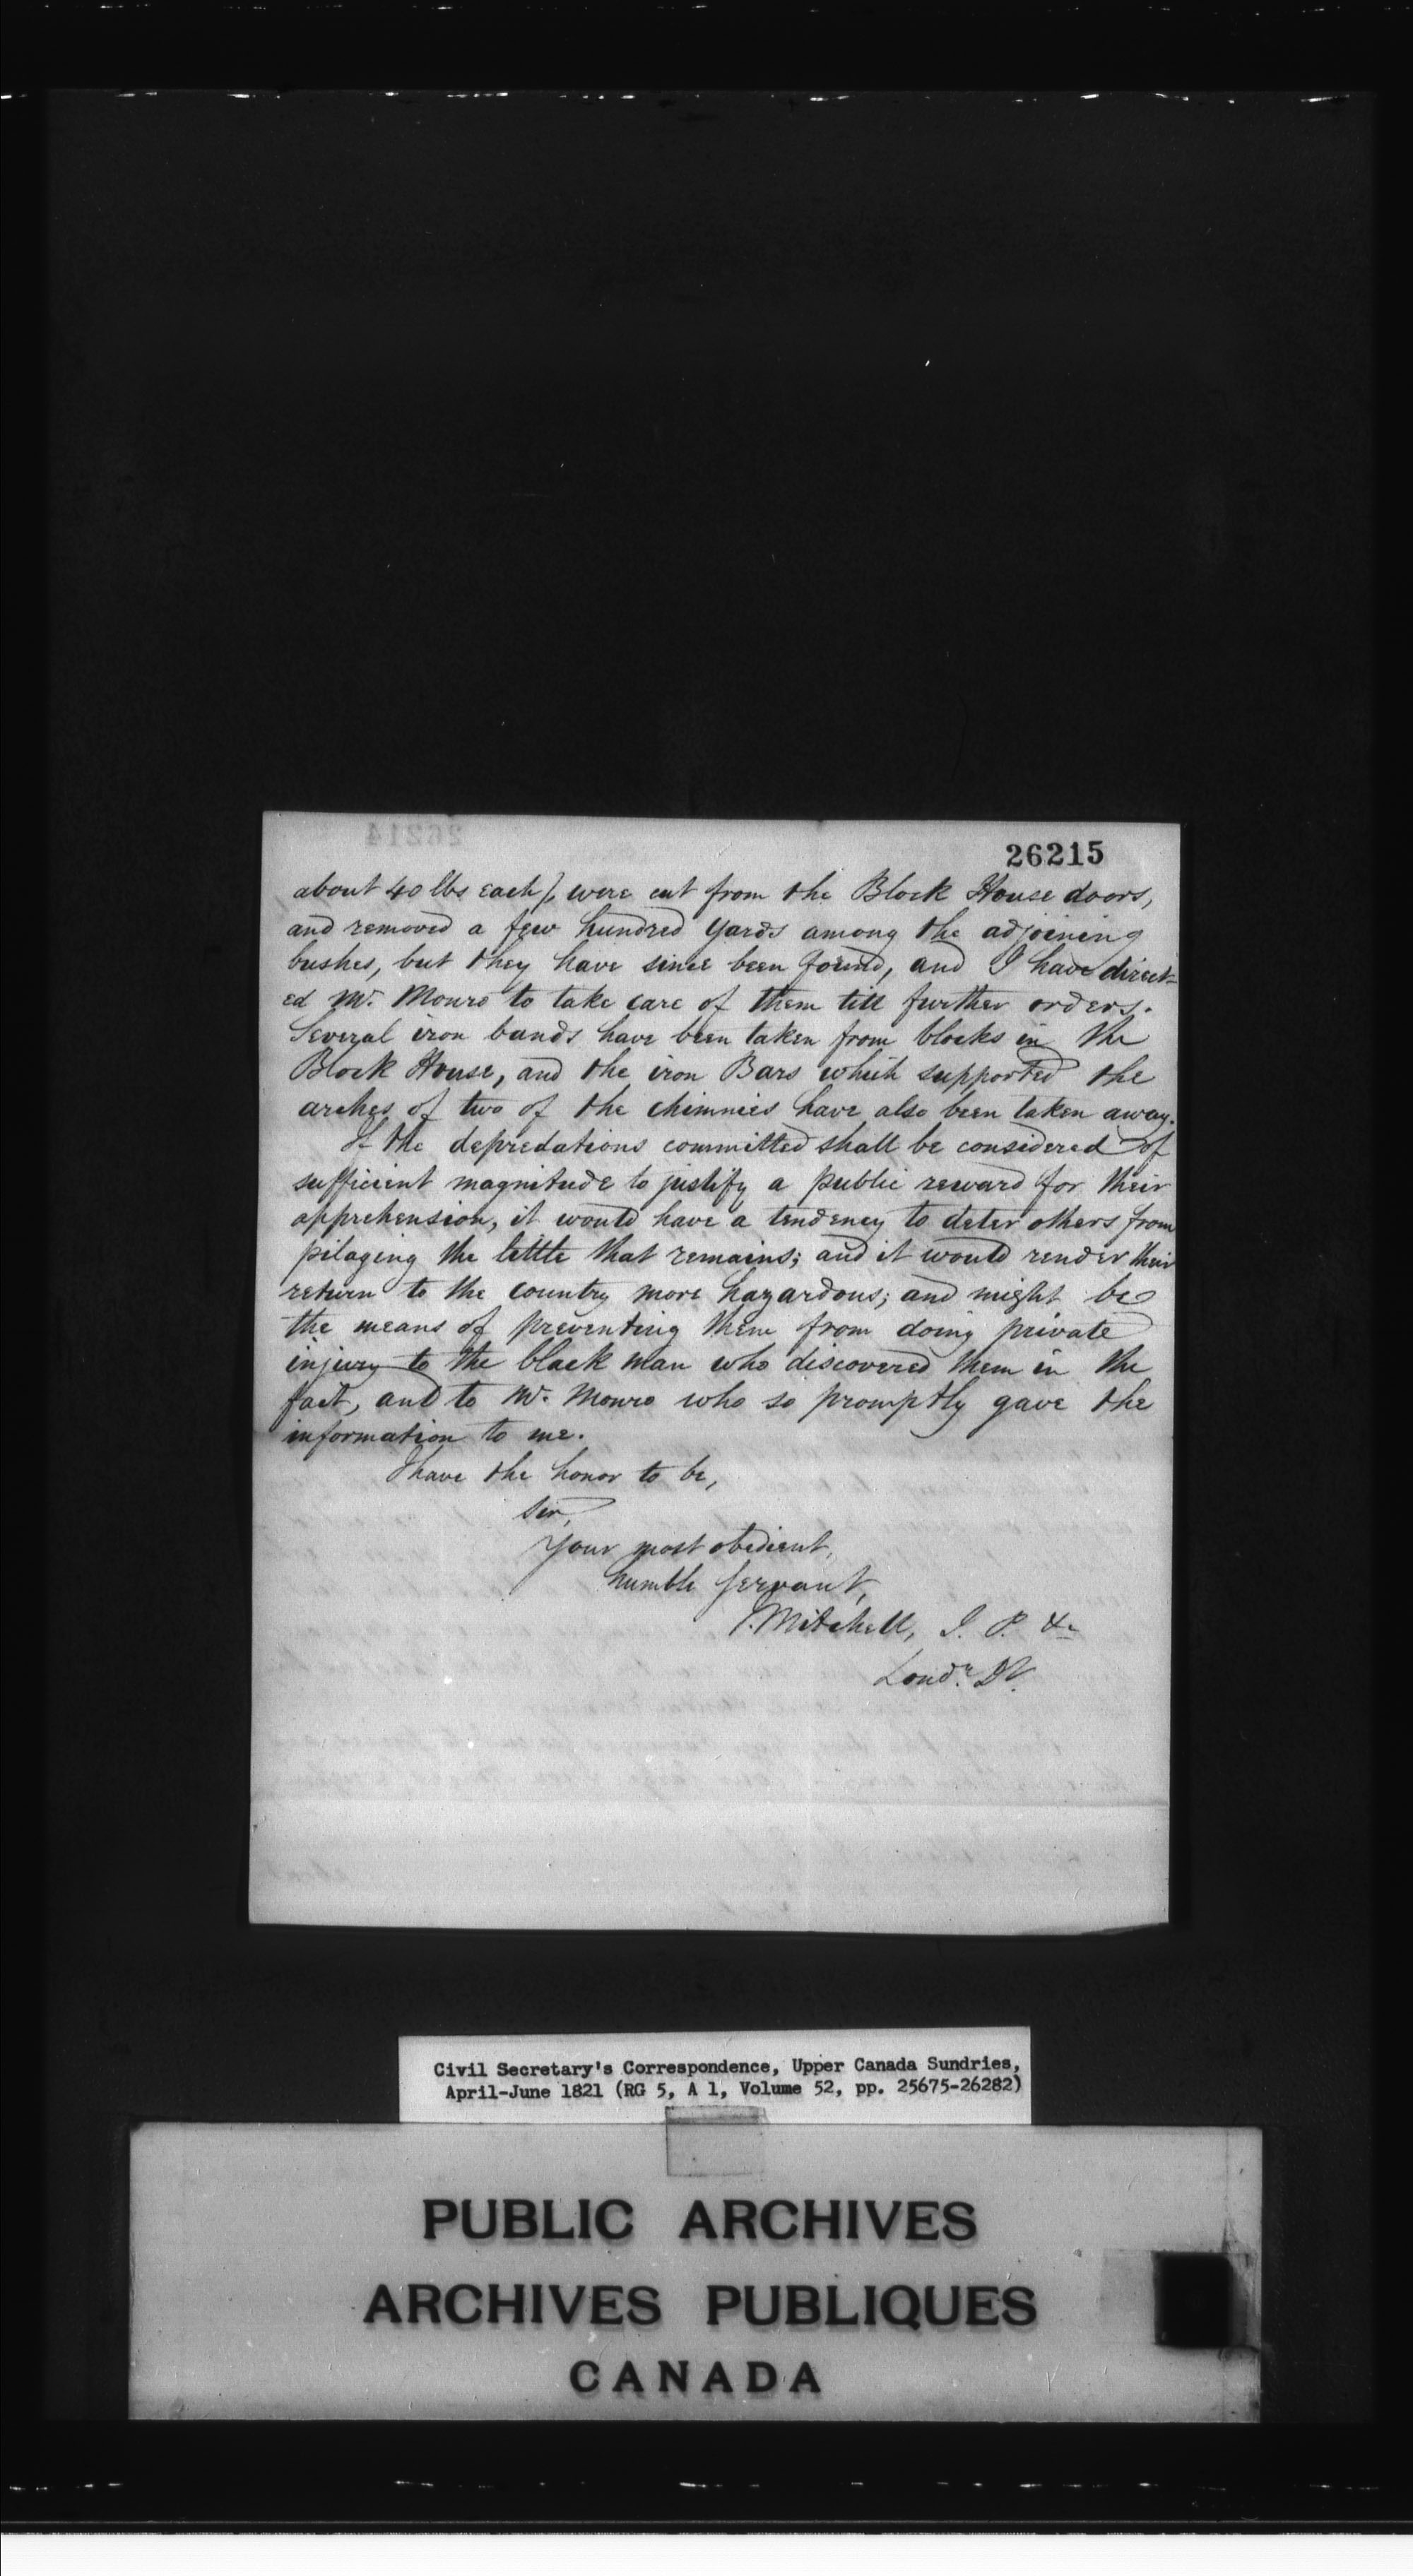 26214
26215
about 40 lbs each), were cut from the Block House doors,
and removed a few hundred yards among the adjoining
bushes, but they have since been found, and I have direct-
ed Mr. Monro to take care of them till further orders.
Several iron bands have been taken from blocks in the
Block House, and the iron Bars which supported the
arches of two of the chimnies have also been taken away.
If the depredations committed shall be considered of
sufficient magnitude to justify a public reward for their
apprehension, it would have a tendency to deter others from
pilaging the little that remains; and it would render their
return to the country more hazardous; and might be
the means of preventing them from doing private
injury to the black man who discovered them in the
fact, and to Mr. Monro who so promptly gave the
information to me.
I have the honor to be,
Sir,
Your most obedient,
humble servant,
Mitchell, J. P. &c
Lond. Dt.
Civil Secretary's Correspondence, Upper Canada Sundries,
April-June 1821 (RG 5, A 1, Volume 52, pp. 25675-26282)
PUBLIC ARCHIVES
ARCHIVES PUBLIQUES
CANADA